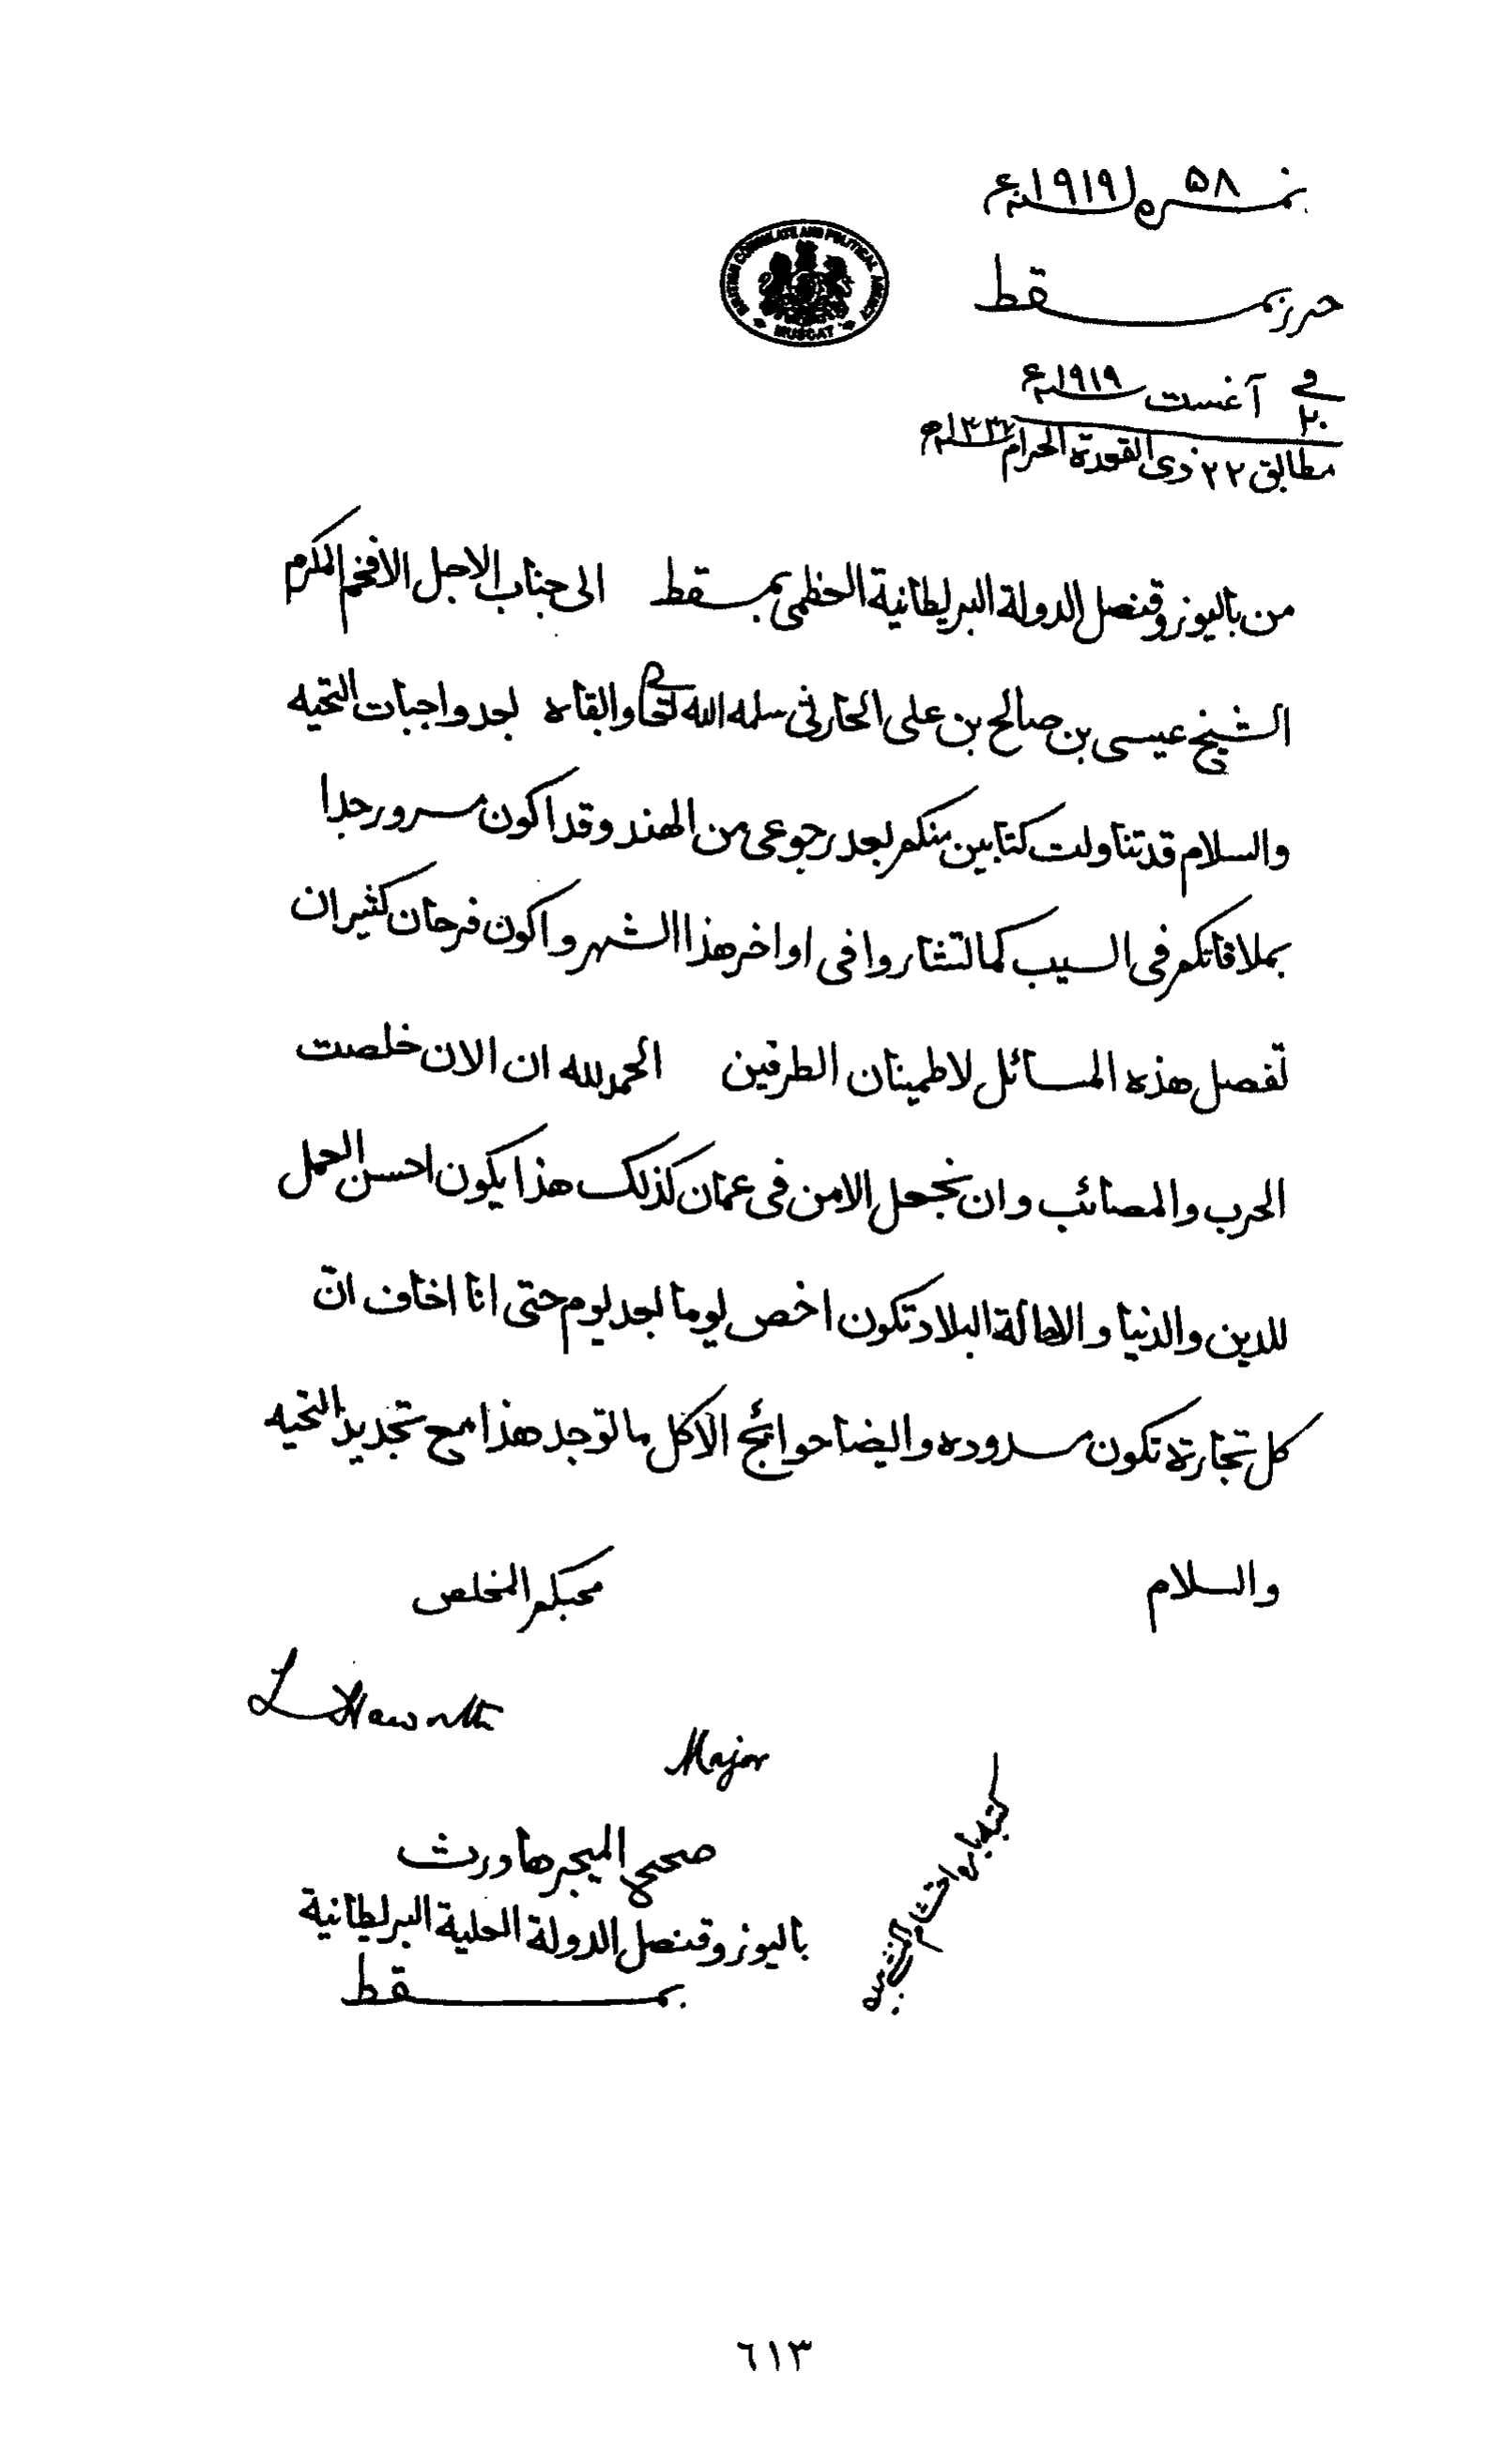 نمبره ٥٨ ١٩١٩ء
BRITISH CONSULATE AND POLITICAL AGENCY
MUSCAT
حرر بمسقط
في ٢٠ آغست ١٩١٩ء
مطابق ٢٢ ذى القعدة الحرام ١٣٣٧ه
من باليوز وقنصل الدولة البريطانية العظمى بمسقط الى جناب الاجل الافخم المكرم
الشيخ عيسى بن صالح بن على الحارثى سلمه الله تعالى وابقاه بعد واجبات التحيه
والسلام قد تناولت كتابين منكم بعد رجوعى من الهند وقد اكون مسرور جدا
بملاقاتكم فى السيب كما تشاروا فى اواخر هذا الشهر واكون فرحان كثير ان
تفصل هذه المسائل لاطمينان الطرفين الحمد لله ان الان خلصت
الحرب والمصائب وان نجعل الامن فى عمان كذلك هذا يكون احسن العمل
للدين والدنيا والا حالة البلاد تكون اخص يوما بعد يوم حتى انا اخاف ان
كل تجارة تكون مسدوده وايضا حوائج الاكل ما توجد هذا مع تجديد التحيه
والسلام محبكم المخلص
L Haworth
Major
صحيح الميجر هاورث
باليوز وقنصل الدولة العلية البرطانية
بمسقط
٦١٣